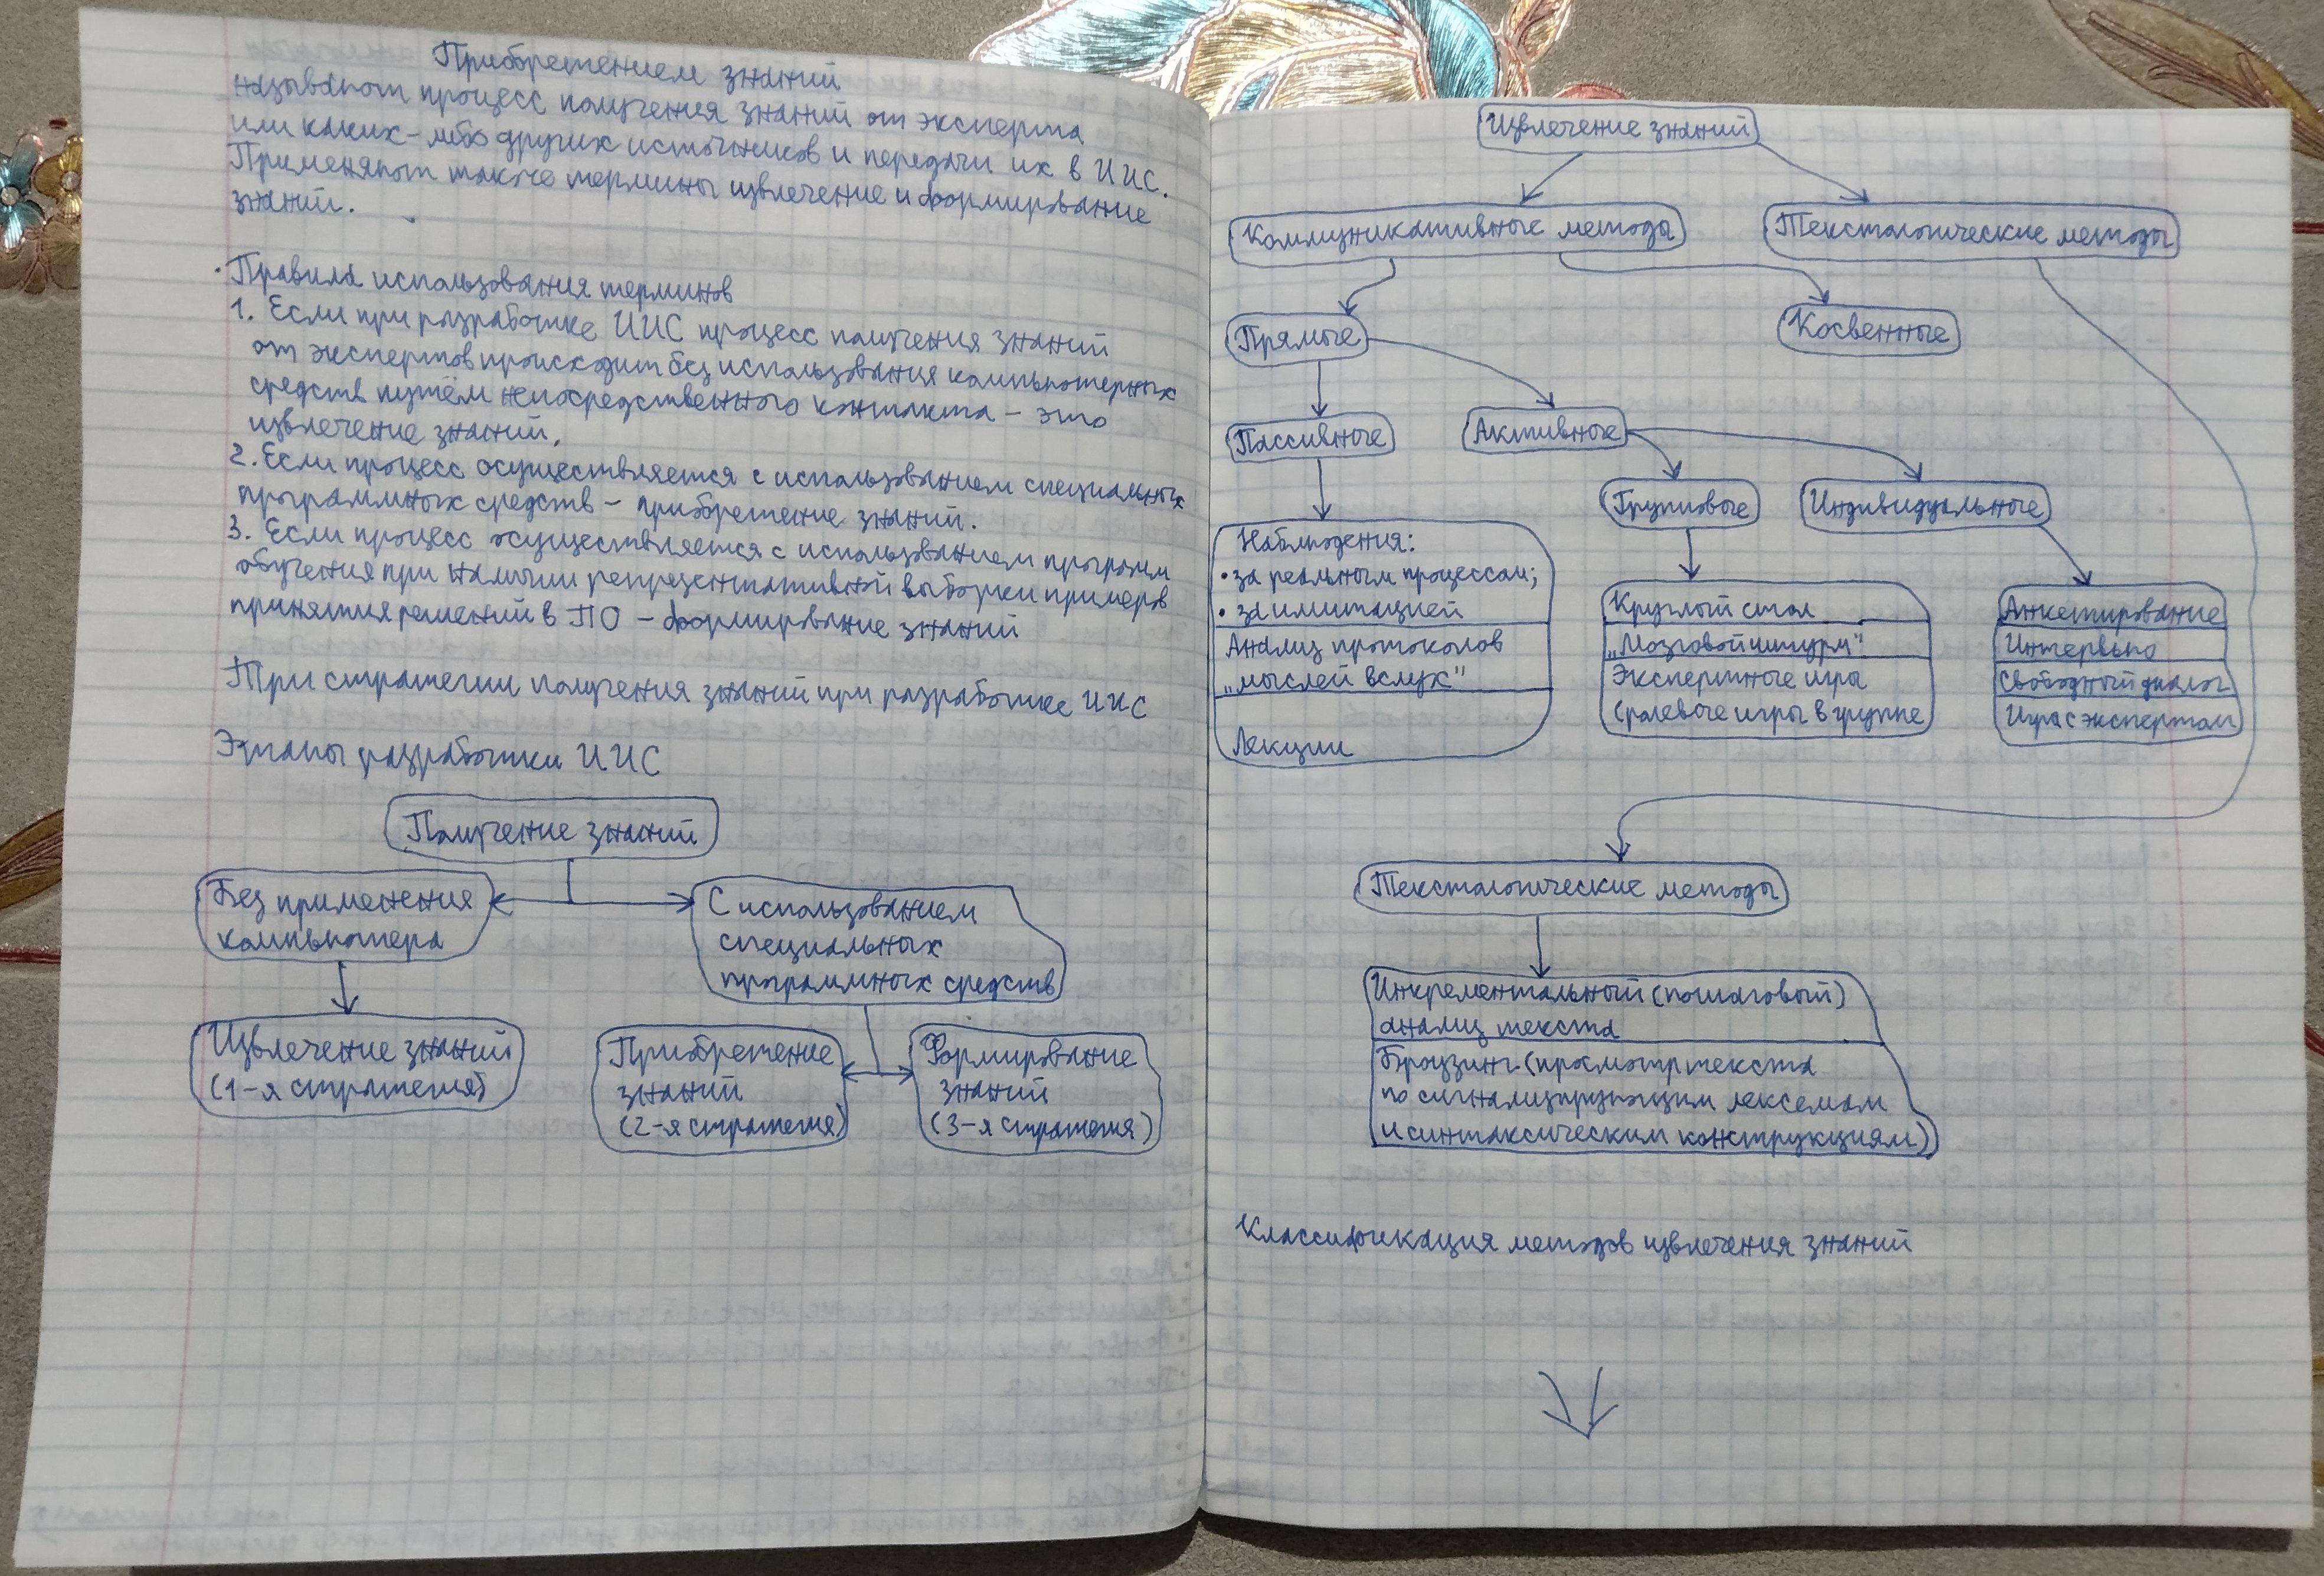 Приобретением знаний
называют процесс получения знаний от эксперта
или каких-либо других источников и передачи их в ИИС.
Применяют также термины извлечение и формирование
знаний.
Правила использования терминов
1. Если при разработке ИИС процесс получения знаний
от экспертов происходит без использования компьютерных
средств путём непосредственного контакта – это
извлечение знаний.
2. Если процесс осуществляется с использованием специальных
программных средств – приобретение знаний.
3. Если процесс осуществляется с использованием программ
обучения при наличии репрезентативной выборки примеров
принятия решений в ПО – формирование знаний
Три стратегии получения знаний при разработке ИИС
Этапы разработки ИИС
Получение знаний
Без применения
компьютера
С использованием
специальных
программных средств
Извлечение знаний
(1-я стратегия)
Приобретение
знаний
(2-я стратегия)
Формирование
знаний
(3-я стратегия)
Извлечение знаний
Коммуникативные методы
Текстологические методы
Прямые
Косвенные
Пассивные
Активные
Групповые
Индивидуальные
Наблюдения:
• за реальным процессом;
• за имитацией
Анализ протоколов
„мыслей вслух"
Лекции
Круглый стол
„Мозговой штурм"
Экспертные игра
(ролевые игры в группе
Анкетирование
Интервью
Свободный диалог
Игра с экспертом
Текстологические методы
Инкрементальный (пошаговый)
анализ текста
Браузинг (просмотр текста
по сигнализирующим лексемам
и синтаксическим конструкциям)
Классификация методов извлечения знаний